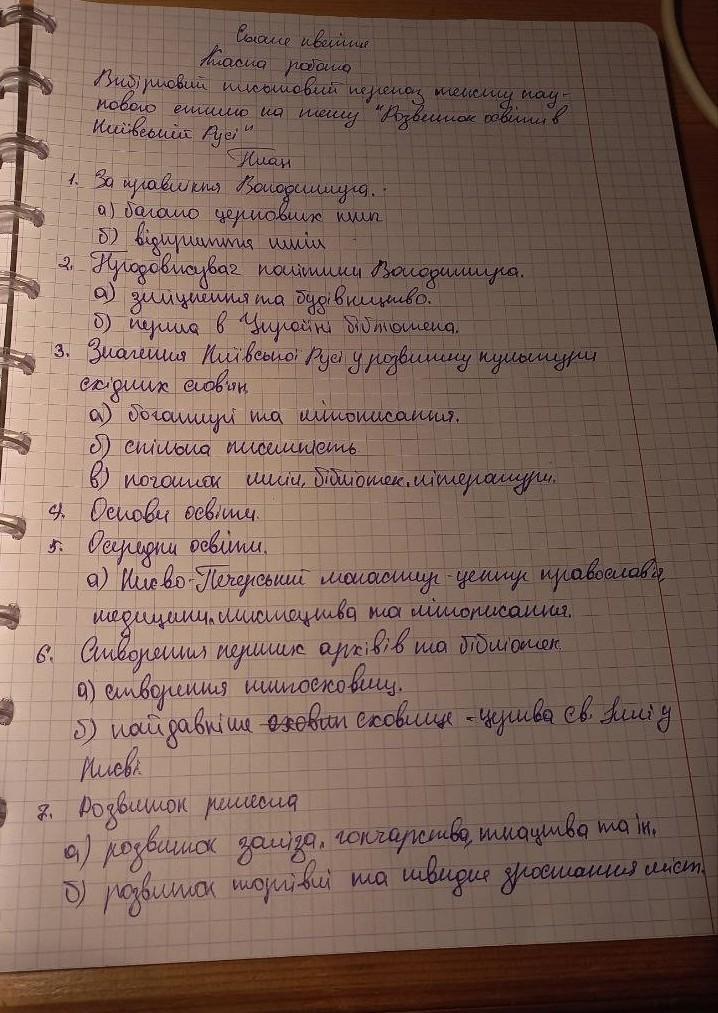 Сьоме квітня
Класна робота
Вибірковий письмовий переказ тексту нау-
кового стилю на тему "Розвиток освіти в
Київській Русі"
План
1. За правління Володимира.
а) багато церковних книг
б) відкриття шкіл
2. Продовжувач політики Володимира.
а) зміцнення та будівництво.
б) перша в Україні бібліотека.
3. Значення Київської Русі у розвитку культури
східних слов'ян
а) богатирі та літописання.
б) спільна писемність
в) початок шкіл, бібліотек, літератури.
4. Основи освіти.
5. Осередки освіти.
а) Києво-Печерський монастир - центр православ'я,
медицини, мистецтва та літописання.
6. Створення перших архівів та бібліотек
а) створення книгосховищ.
б) найдавніше сховище - церква Св. Іллі у
Києві.
7. Розвиток ремесла
а) розвиток заліза, гончарства, ткацтва та ін.
б) розвиток торгівлі та швидке зростання міст.